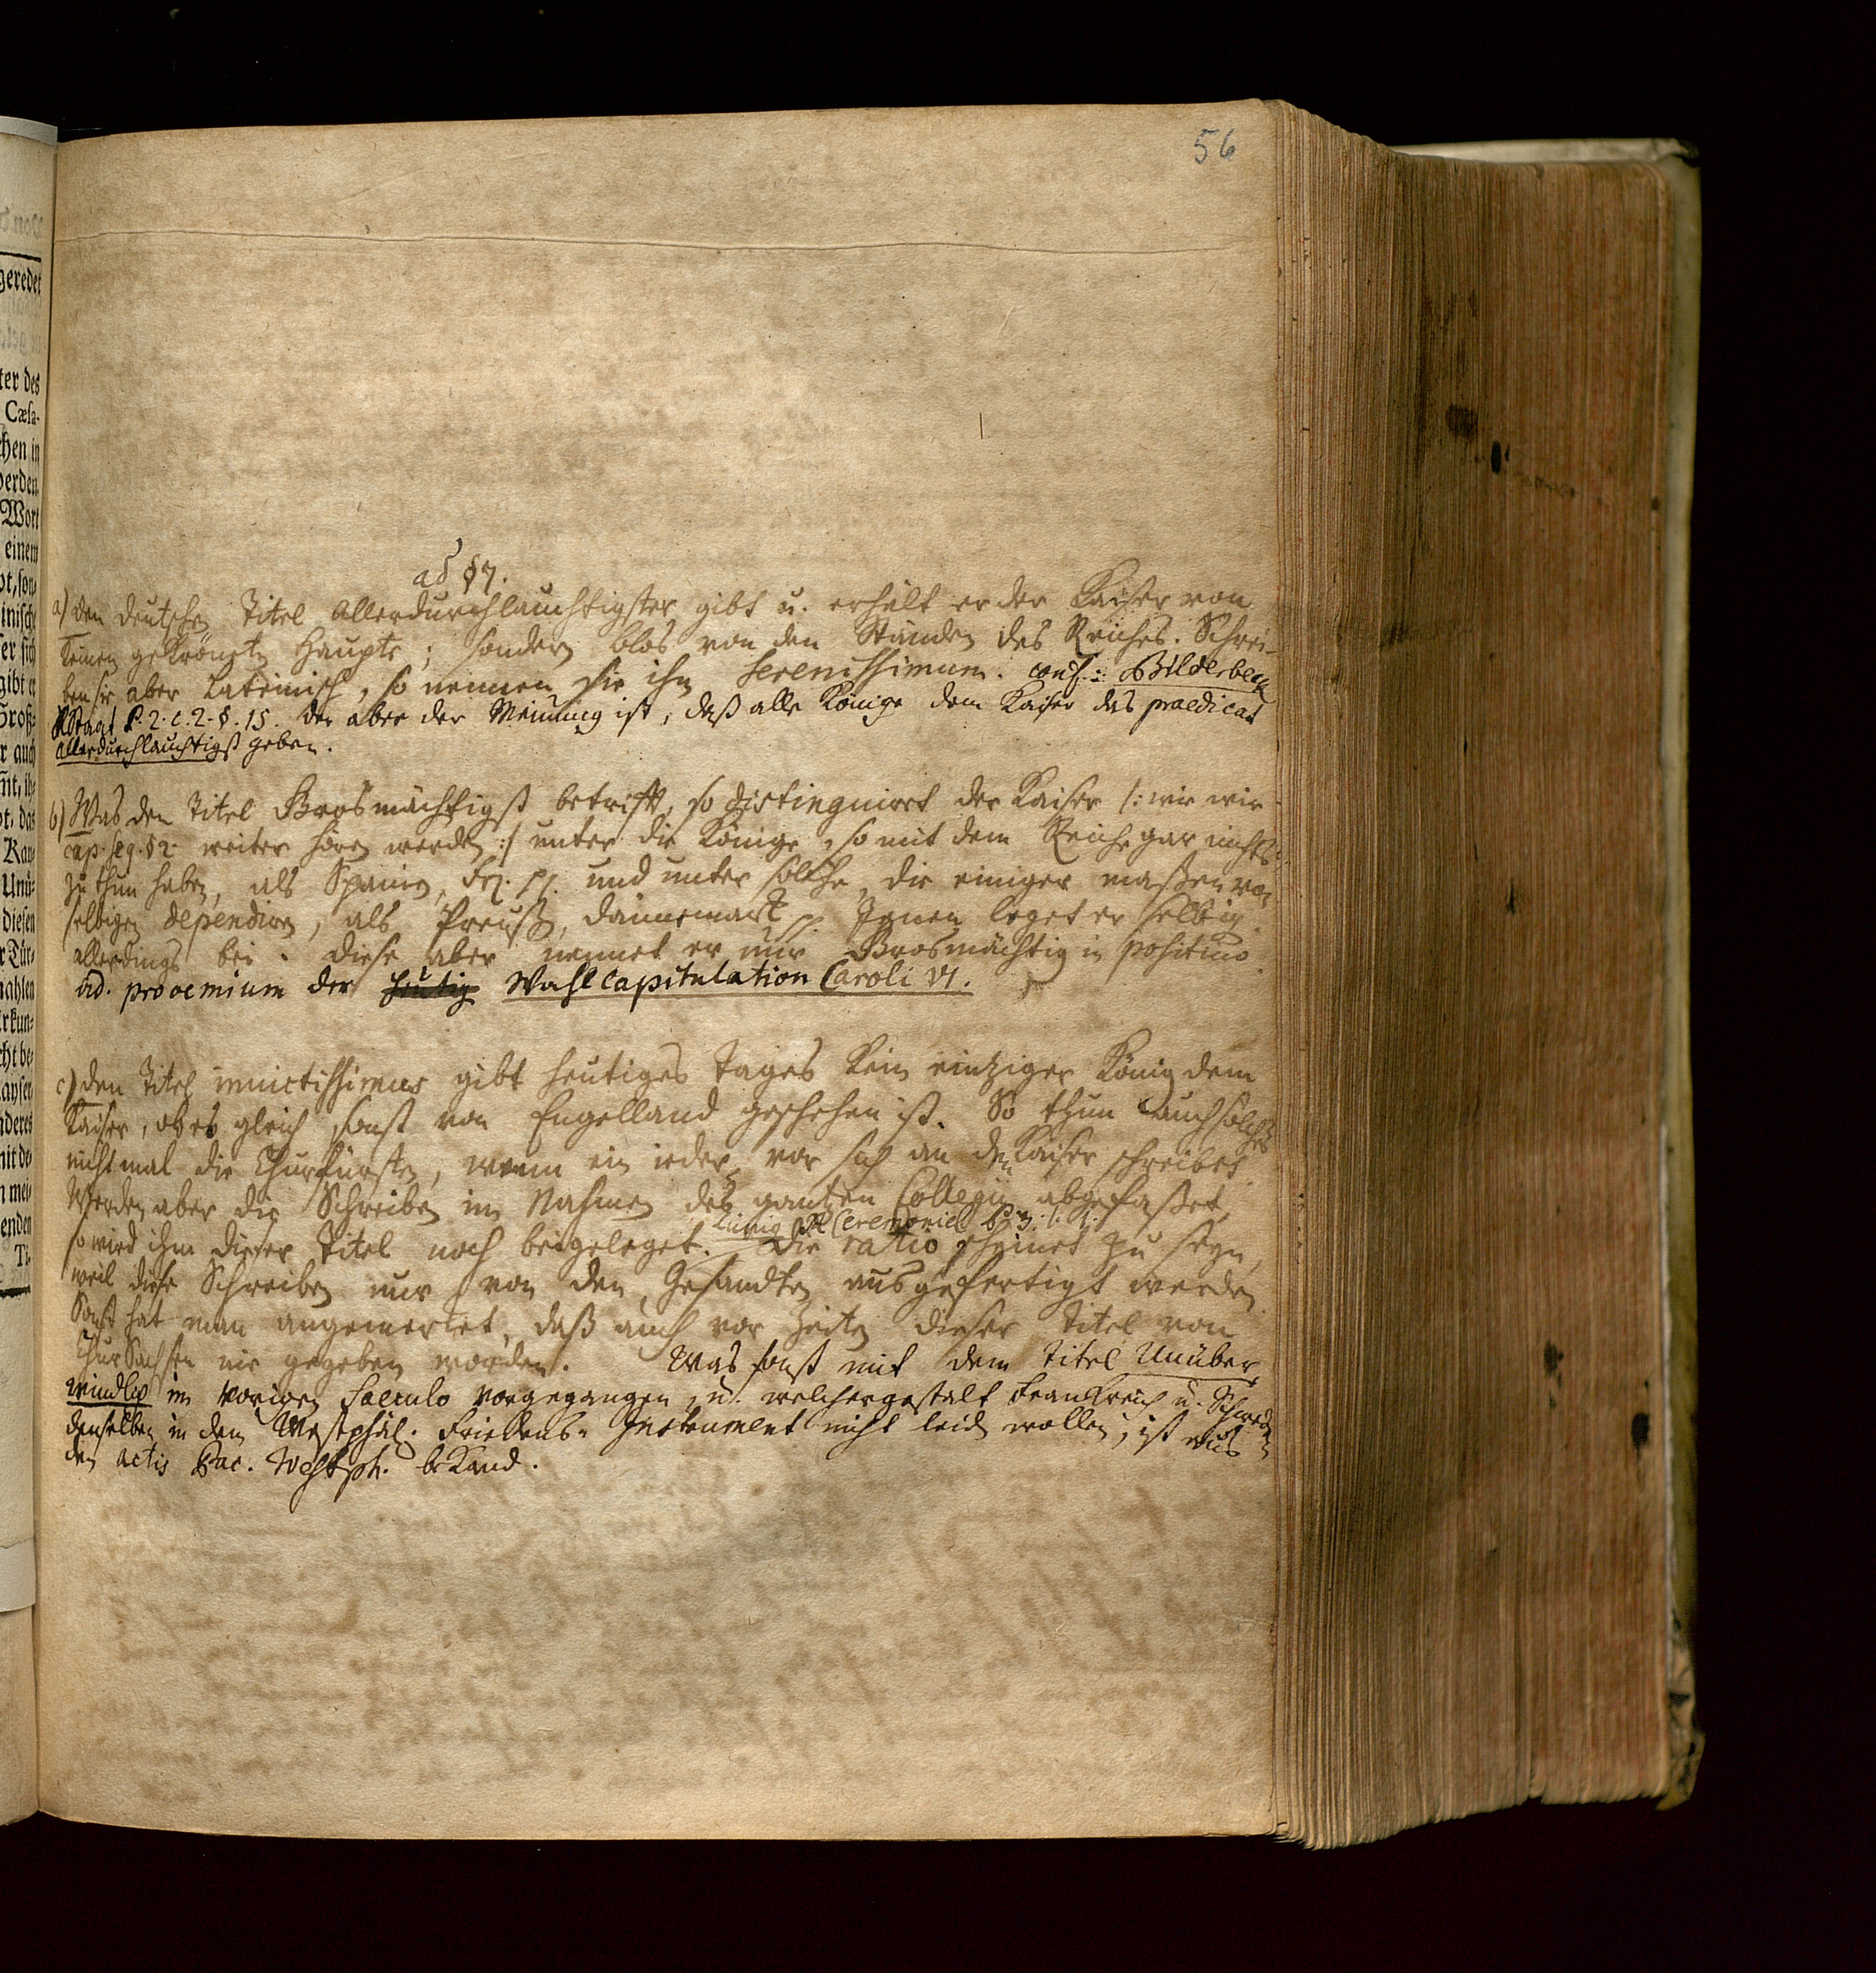 56
ad §7.
a) Den deutschen Titel Allerdurchlauchtigster gibt u. erhält er der Kaiser von
keinen gekrönten Haupte; sondern blos von den Ständen des Reiches. Schrei-
ben sie aber Lateinisch, so nennen sie ihn Serenissimum. conf. Bilderbeck
RStaat P. 2. c. 2. §. 15. der aber der Meinung ist, daß alle Könige dem Kaiser das praedicat
Allerdurchlauchtigst geben.
b) Was den Titel Grosmächtigst betrifft, so distinguirt der Kaiser /: wie wir
cap. seq. §2. weiter hören werden :/ unter die Könige, so mit dem Reiche gar nichts
zu thun haben, als Spanien, und unter solche, die einiger maßen von
selbigen dependiren, als Preuß, Dännemark Jenen leget er selbig
allerdings bei. diese aber nennet er nur Grosmächtig in positivo
ad. prooemium der heutig Wahlcapitulation Caroli VI.
c) Den Titel invictissimus gibt heutiges Tages kein eintziger König dem
Kaiser, ob es gleich sonst von Engelland geschehen ist. So thun auch solches
nicht mal die Churfürsten, wenn ein ieder vor sich an den Kaiser schreibet
Werden aber die Schreiben im Nahmen des gantzen Collegii abgefaßet,
Lünig Ceremoniel
so wird ihm dieser Titel noch beigeleget. Die ratio scheinet zu seyn,
weil diese Schreiben nur von den Gesandten ausgefertigt werden
Sonst hat man angemerket, daß auch vor Zeiten dieser Titel von
ChurSachsen nie gegeben worden. Was sonst mit dem Titel Unüber
windlich im vorigen Saeculo vorgegangen, u. welchergestalt Frankreich u. Schweden
denselben in dem Westphäl. Friedens-Instrument nicht leiden wollen, ist aus
den actis Pac. Westph. bekand.
geredet
ter des
Cæsa-
chen in
werden.
Wort
einem
er sich
gibt er
Groß-
r auch
diesen
ahlen
cht be-
nderes
enden